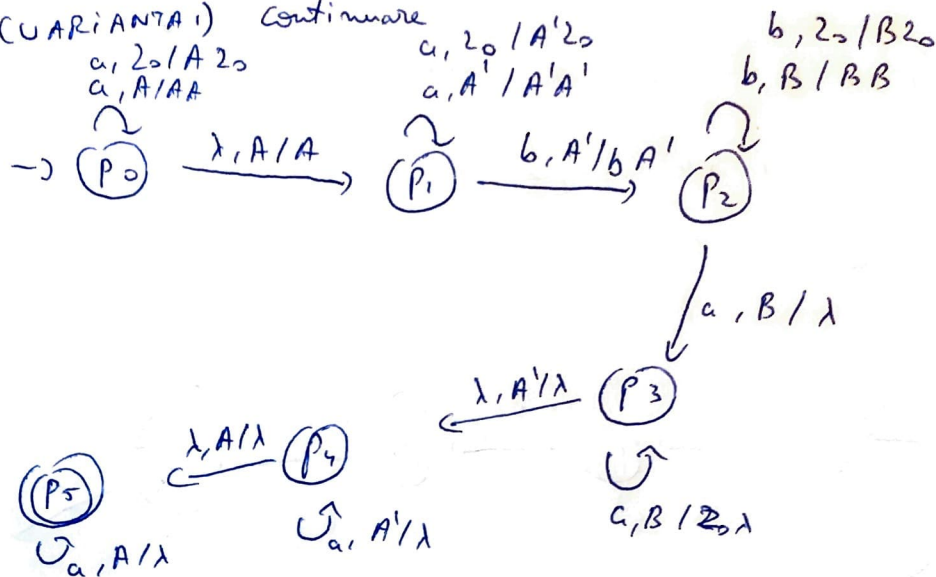 (VARIANTA 1) Continuare
a, Z₀/A Z₀
a, A/AA
a, Z₀/A'Z₀
a, A'/A'A'
b, Z₀/BZ₀
b, B/BB
→ P₀
λ, A/A
P₁
b, A'/b A'
P₂
a, B/λ
P₃
λ, A'/λ
P₄
λ, A/λ
P₅
a, B/Z₀λ
a, A'/λ
a, A/λ